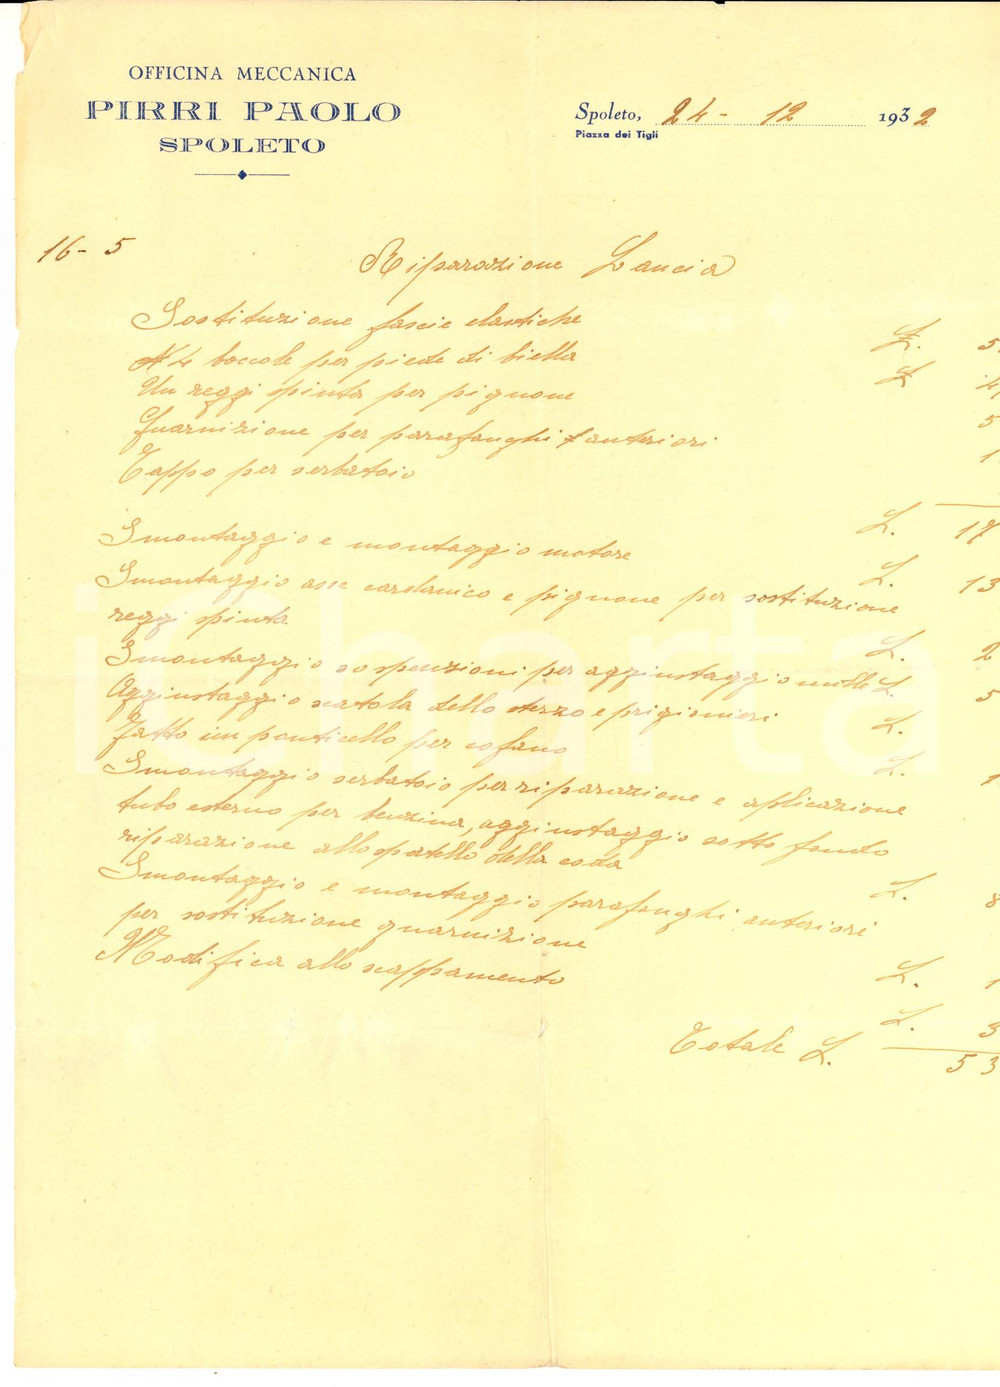 OFFICINA MECCANICA
PIRRI PAOLO
SPOLETO
Spoleto, 24 - 12 1932
Piazza dei Tigli
16 - 5
Riparazione Lancia
Sostituzione fascie elastiche £. 5
N 4 boccole per piede di biella £ 4
Un reggi spinta per pignone 5
Guarnizione per parafanghi anteriori 1
Tappo per serbatoio
L. 17
Smontaggio e montaggio motore L. 13
Smontaggio asse cardanico e pignone per sostituzione
reggi spinta L. 2
Smontaggio sospenzioni per aggiustaggio molle L. 5
Aggiustaggio scatola dello sterzo e prigionieri L.
Fatto un ponticello per cofano L. 1
Smontaggio serbatoio per riparazione e aplicazione
tubo esterno per benzina, aggiustaggio sotto fondo
riparazione allo spatello della coda L. 8
Smontaggio e montaggio parafanghi anteriori
per sostituzione guarnizione L. 1
Modifica allo scappamento L. 3
Totale L. 53
icharta